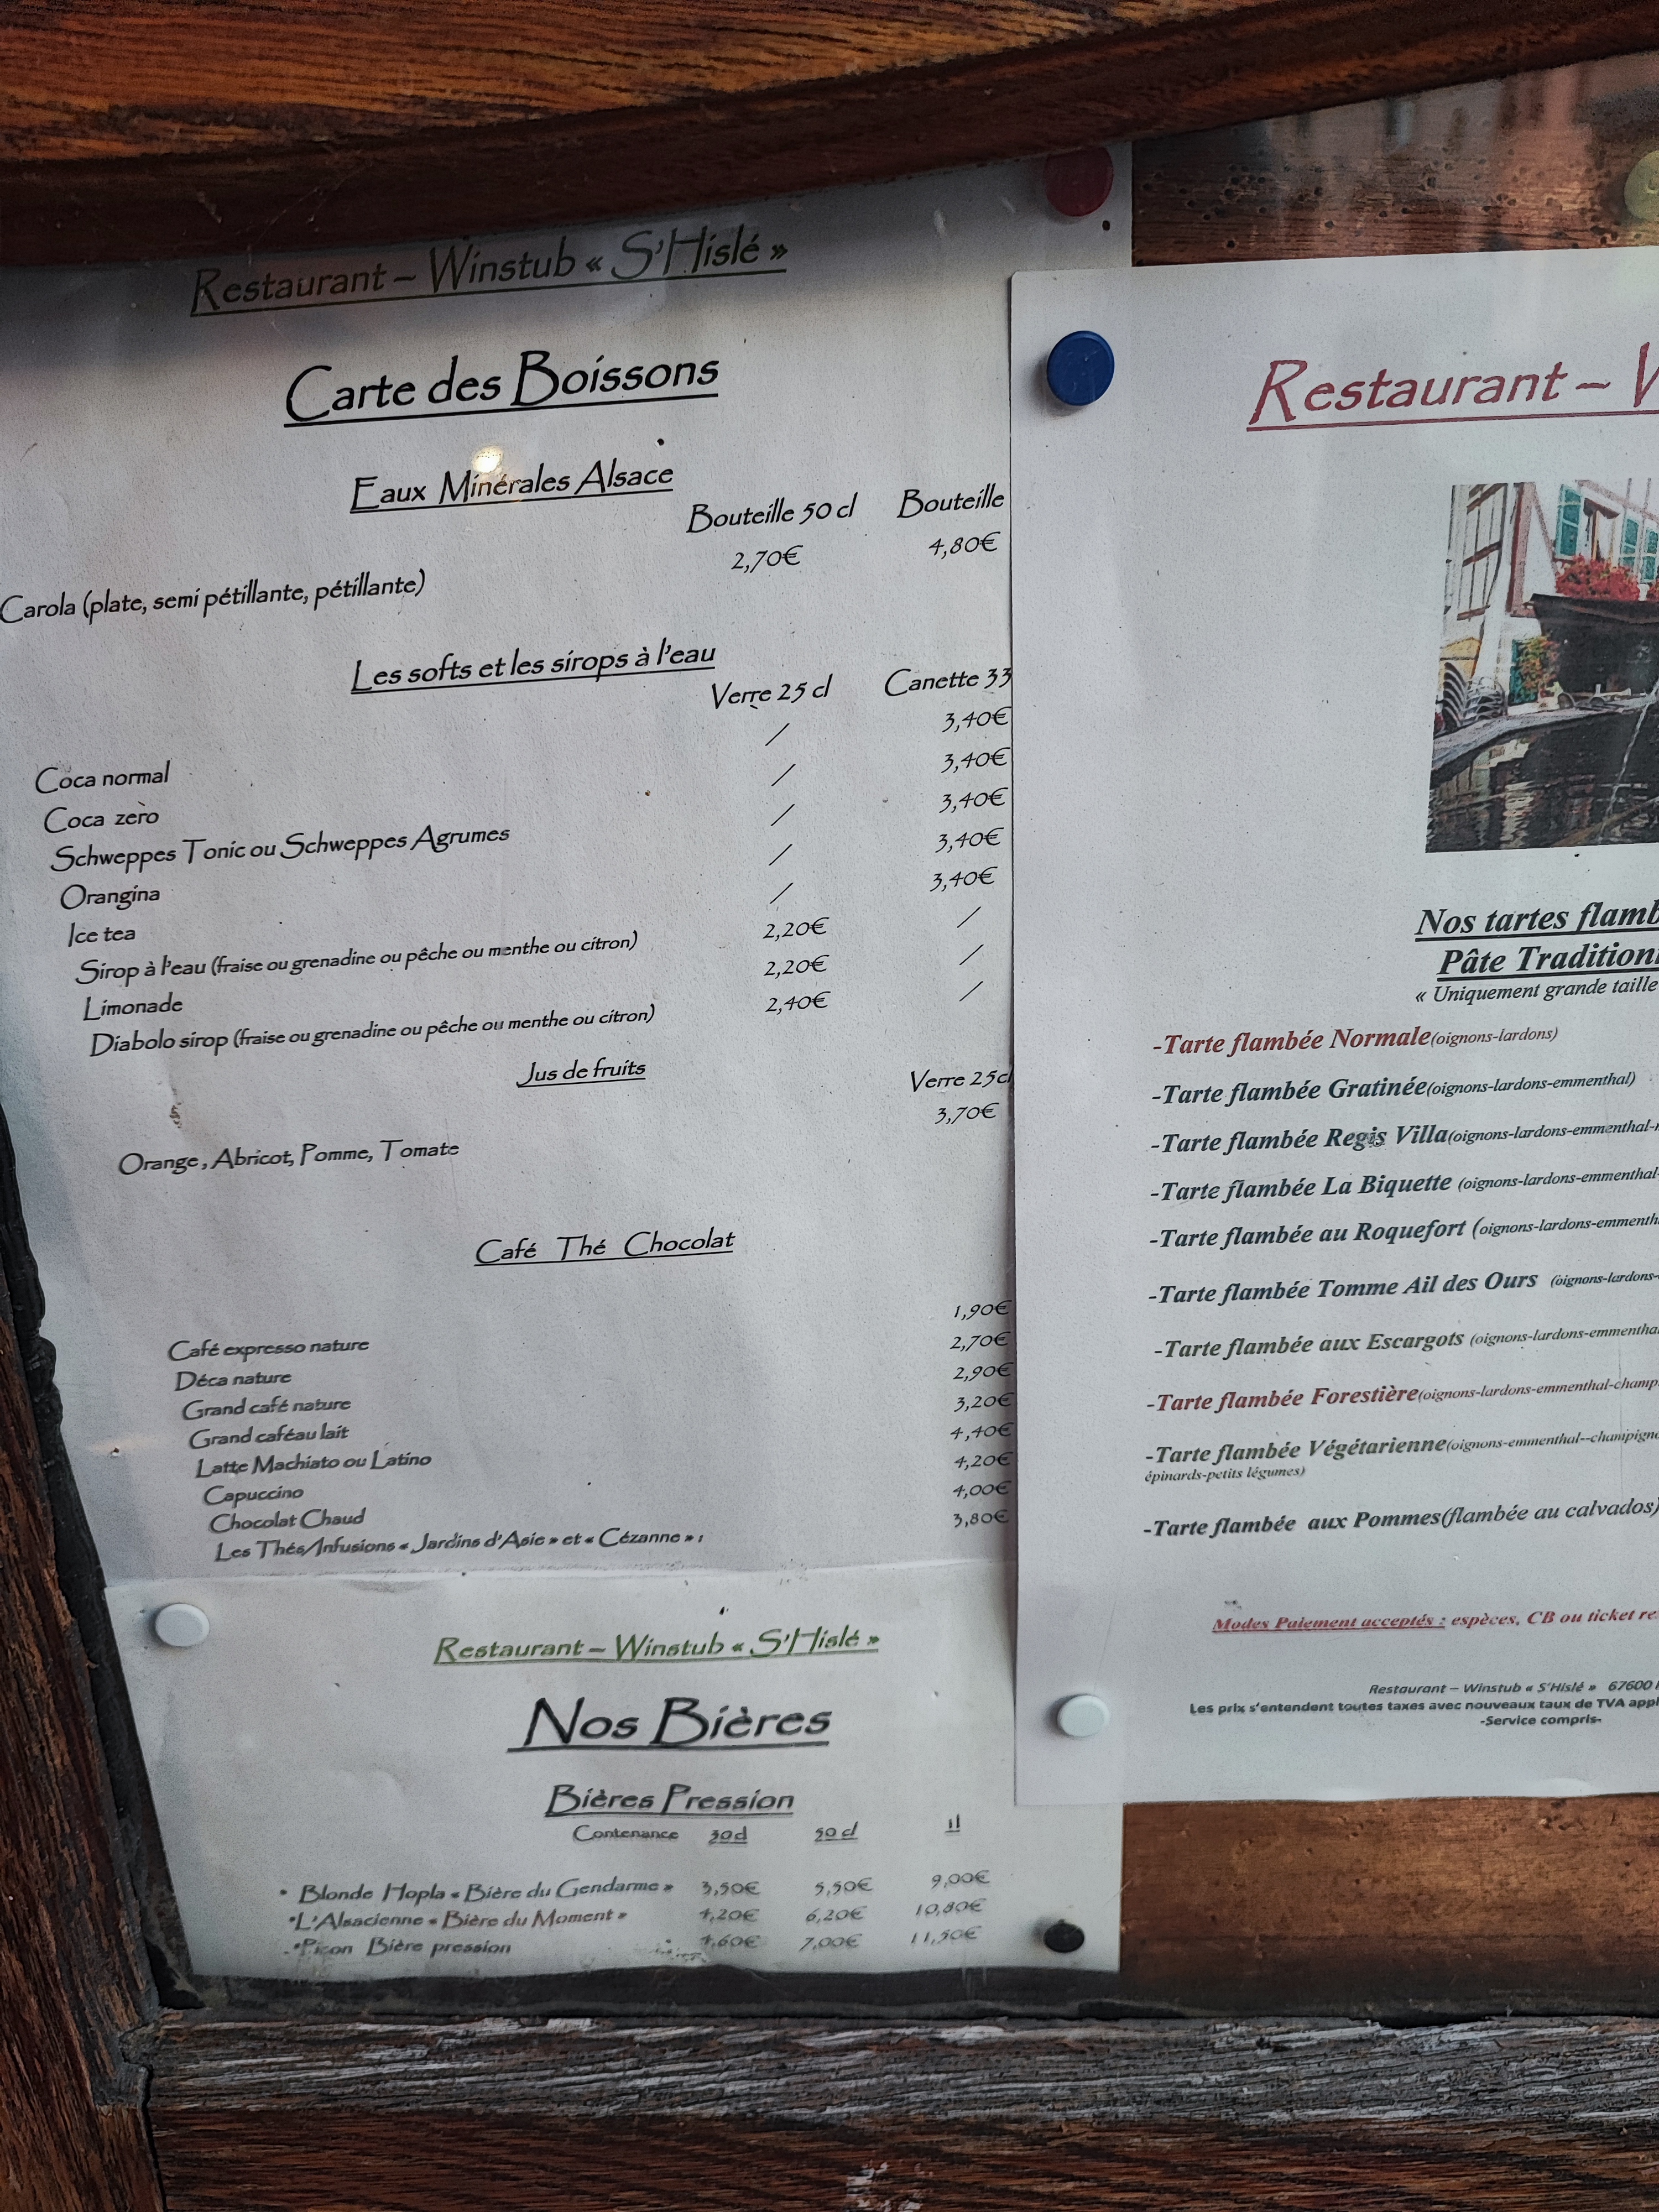 Restaurant – Winstub « S'Hislé »
Carte des Boissons
Eaux Minérales Alsace
Bouteille 50 cl Bouteille
Carola (plate, semi pétillante, pétillante) 2,70€ 4,80€
Les softs et les sirops à l'eau
Verre 25 cl Canette 33
Coca normal / 3,40€
Coca zèro / 3,40€
Schweppes Tonic ou Schweppes Agrumes / 3,40€
Orangina / 3,40€
Ice tea / 3,40€
Sirop à l'eau (fraise ou grenadine ou pêche ou menthe ou citron) 2,20€ /
Limonade 2,20€ /
Diabolo sirop (fraise ou grenadine ou pêche ou menthe ou citron) 2,40€ /
Jus de fruits
Verre 25cl
Orange, Abricot, Pomme, Tomate 3,70€
Café Thé Chocolat
Café expresso nature 1,90€
Déca nature 2,70€
Grand café nature 2,90€
Grand caféau lait 3,20€
Latte Machiato ou Latino 4,40€
Capuccino 4,20€
Chocolat Chaud 4,00€
Les Thés/Infusions « Jardins d'Asie » et « Cézanne » : 3,80€
Restaurant – Winstub « S'Hislé »
Nos Bières
Bières Pression
Contenance 30cl 50 cl 1l
• Blonde Hopla « Bière du Gendarme » 3,50€ 5,50€ 9,00€
•L'Alsacienne « Bière du Moment » 4,20€ 6,20€ 10,80€
•Picon Bière pression 4,60€ 7,00€ 11,50€
Restaurant –
Nos tartes flamb
Pâte Tradition
« Uniquement grande taille
-Tarte flambée Normale(oignons-lardons)
-Tarte flambée Gratinée(oignons-lardons-emmenthal)
-Tarte flambée Regis Villa(oignons-lardons-emmenthal-
-Tarte flambée La Biquette (oignons-lardons-emmenthal-
-Tarte flambée au Roquefort (oignons-lardons-emmenth
-Tarte flambée Tomme Ail des Ours (oignons-lardons-
-Tarte flambée aux Escargots (oignons-lardons-emmentha
-Tarte flambée Forestière(oignons-lardons-emmenthal-champ
-Tarte flambée Végétarienne(oignons-emmenthal--champigno
épinards-petits légumes)
-Tarte flambée aux Pommes(flambée au calvados)
Modes Paiement acceptés : espèces, CB ou ticket re
Restaurant – Winstub « S'Hislé » 67600
Les prix s'entendent toutes taxes avec nouveaux taux de TVA appl
-Service compris-